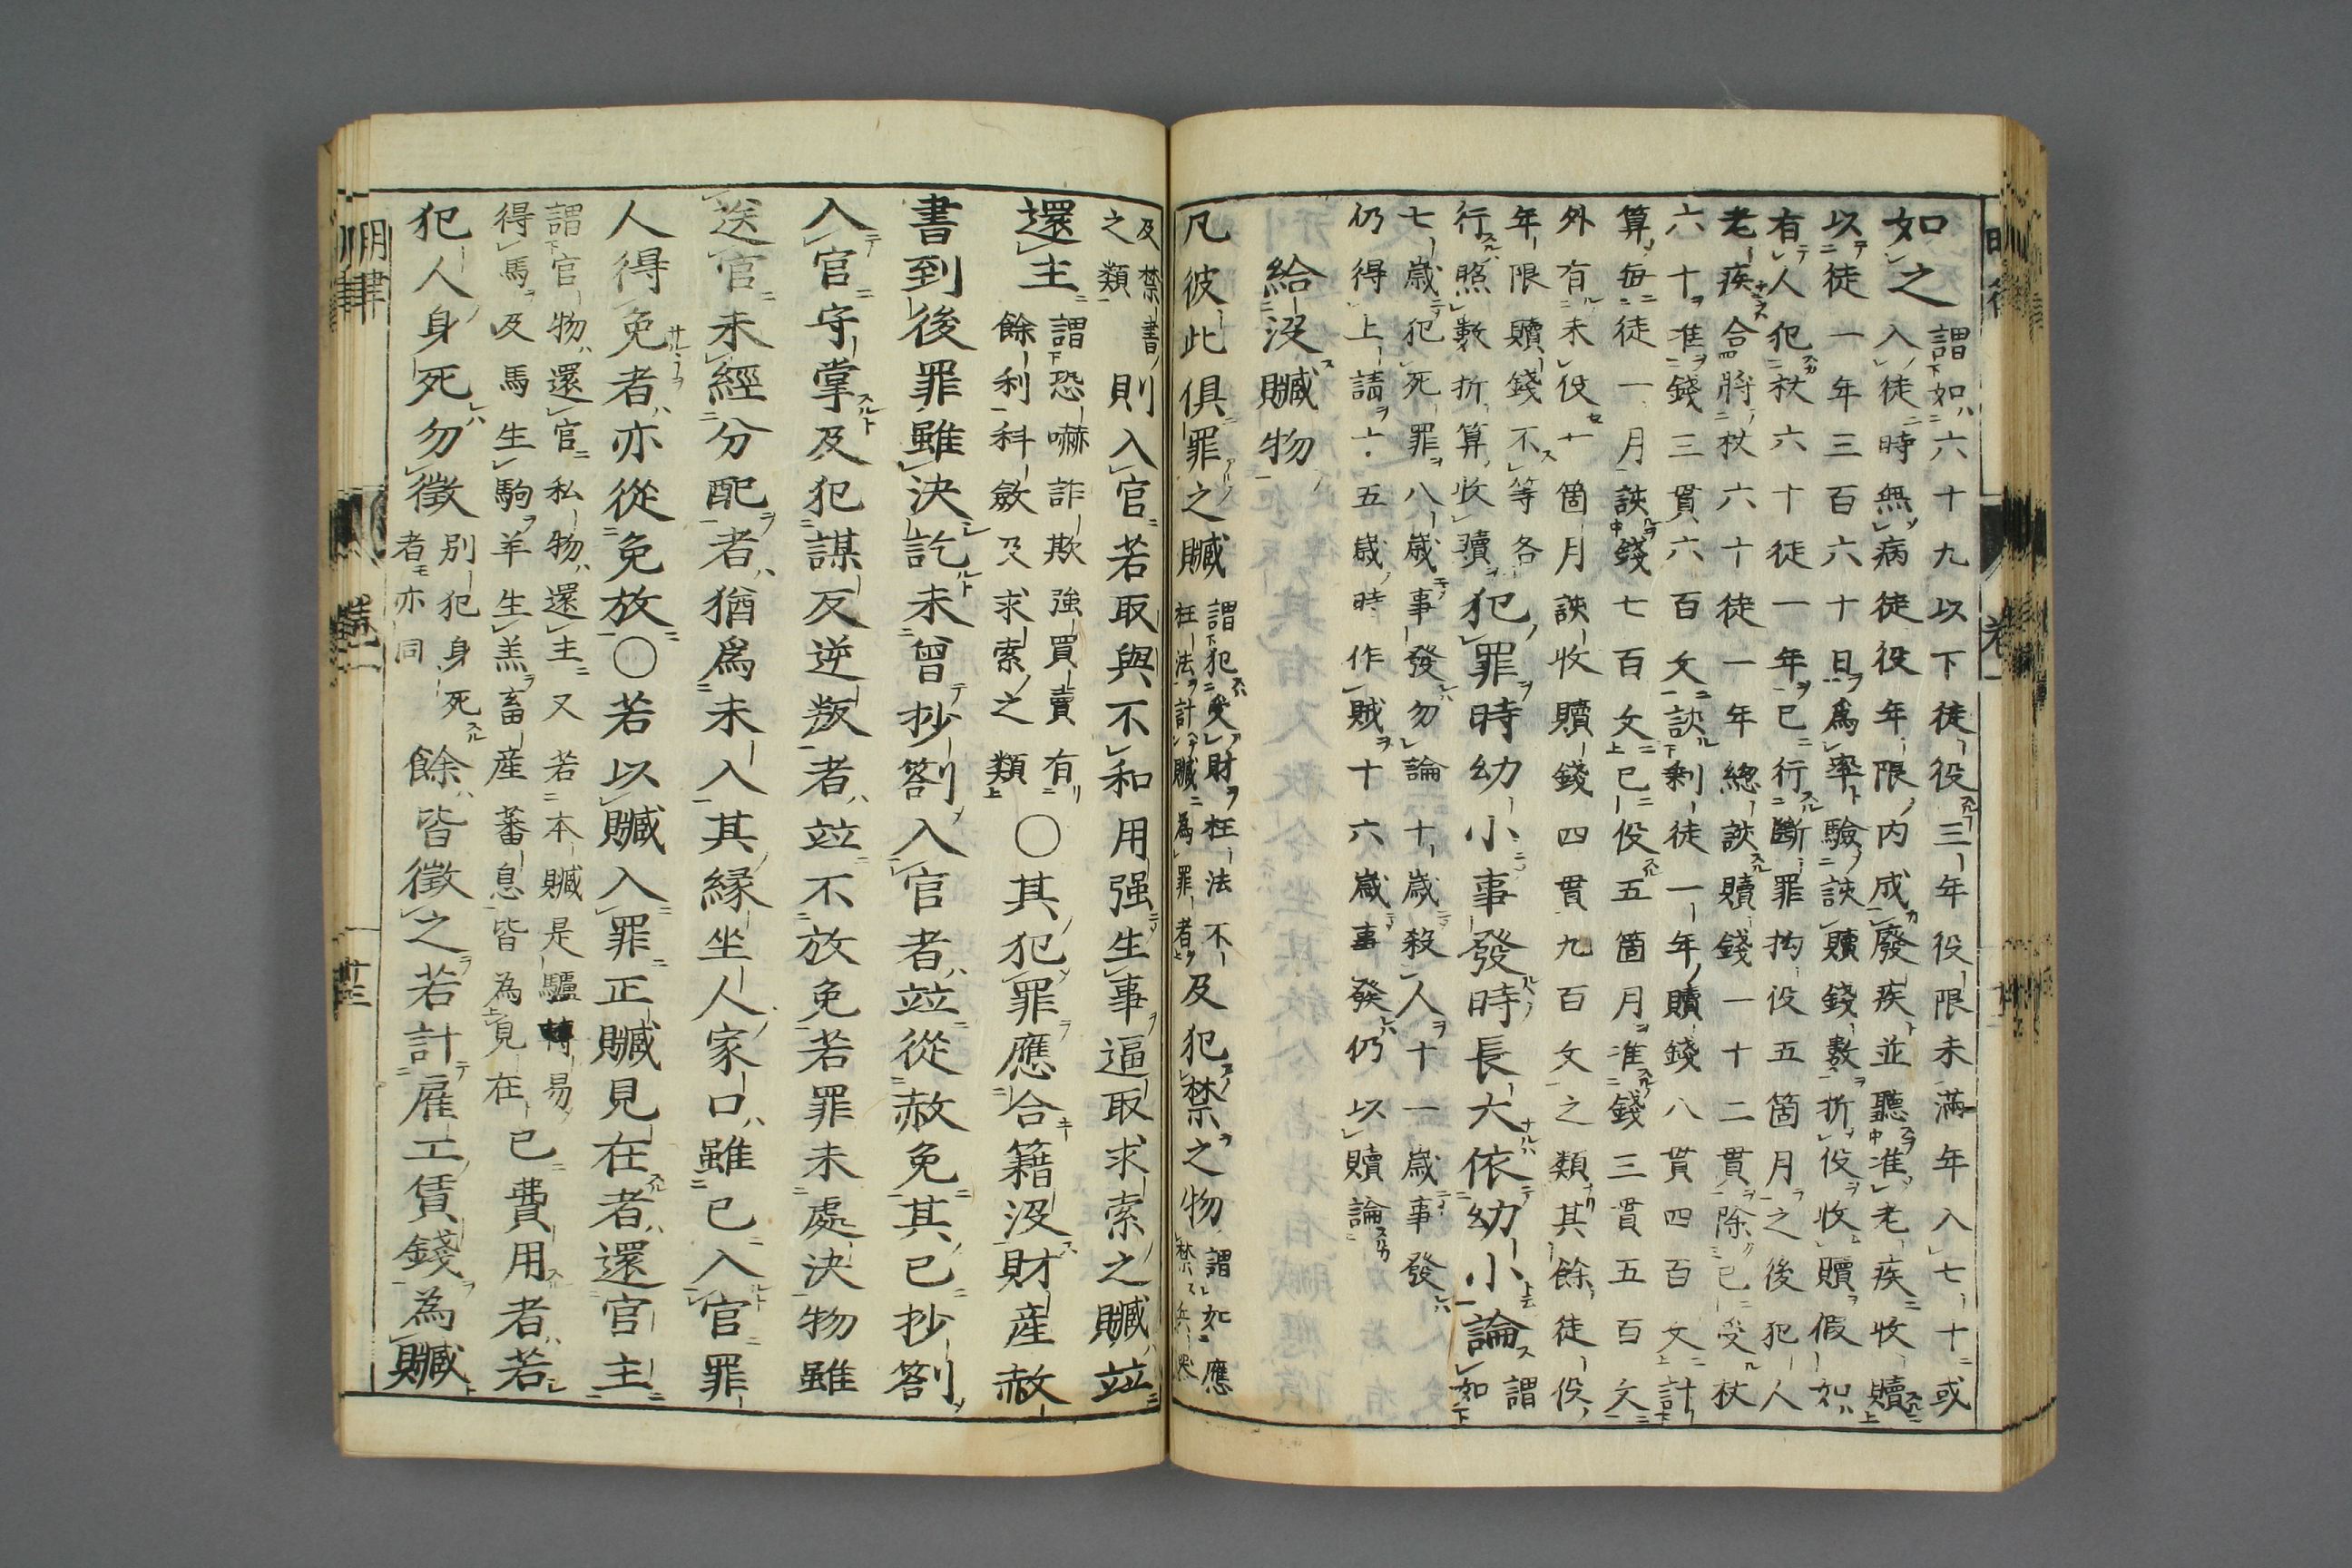 如之謂如六十九以下徒役三年役限未滿年入七十或
入徒時無病徒役年限內成廢疾並聽准老疾收贖
以徒一年三百六十日爲率驗該贖錢數折役收贖假如
有人犯杖六十徒一年已行斷罪拘役五箇月之後犯人
老疾合將杖六十徒一年總該贖錢一十二貫除已受杖
六十准錢三貫六百文該剩徒一年贖錢八貫四百文計
算每徒一月該錢七百文已役五箇月准錢三貫五百文
外有未役七箇月該收贖錢四貫九百文之類其餘徒役
年限贖錢不等各
行照數折算收贖犯罪時幼小事發時長大依幼小論謂如
七歲犯死罪八歲事發勿論十歲殺人十一歲事發
仍得上請十五歲時作賊十六歲事發仍以贖論
給沒贓物
凡彼此俱罪之贓謂犯受財枉法不
枉法計贓為罪者及犯禁之物謂如應
禁兵器
及禁書
之類則入官若取與不和用强生事逼取求索之贓竝
還主謂恐嚇詐欺強買賣有
餘利科斂及求索之類〇其犯罪應合籍沒財産赦
書到後罪雖決訖未曾抄劄入官者竝從赦免其已抄劄
入官守掌及犯謀反逆叛者竝不放免若罪未處決物雖
送官未經分配者猶爲未入其緣坐人家口雖已入官罪
人得免者亦從免放〇若以贓入罪正贓見在者還官主
謂官物還官私物還主又若本贓是驢轉易
得馬及馬生駒羊生羔畜産蕃息皆為見在已費用者若
犯人身死勿徵別犯身死
者亦同餘皆徵之若計雇工賃錢為贓
明律
卷一
十三